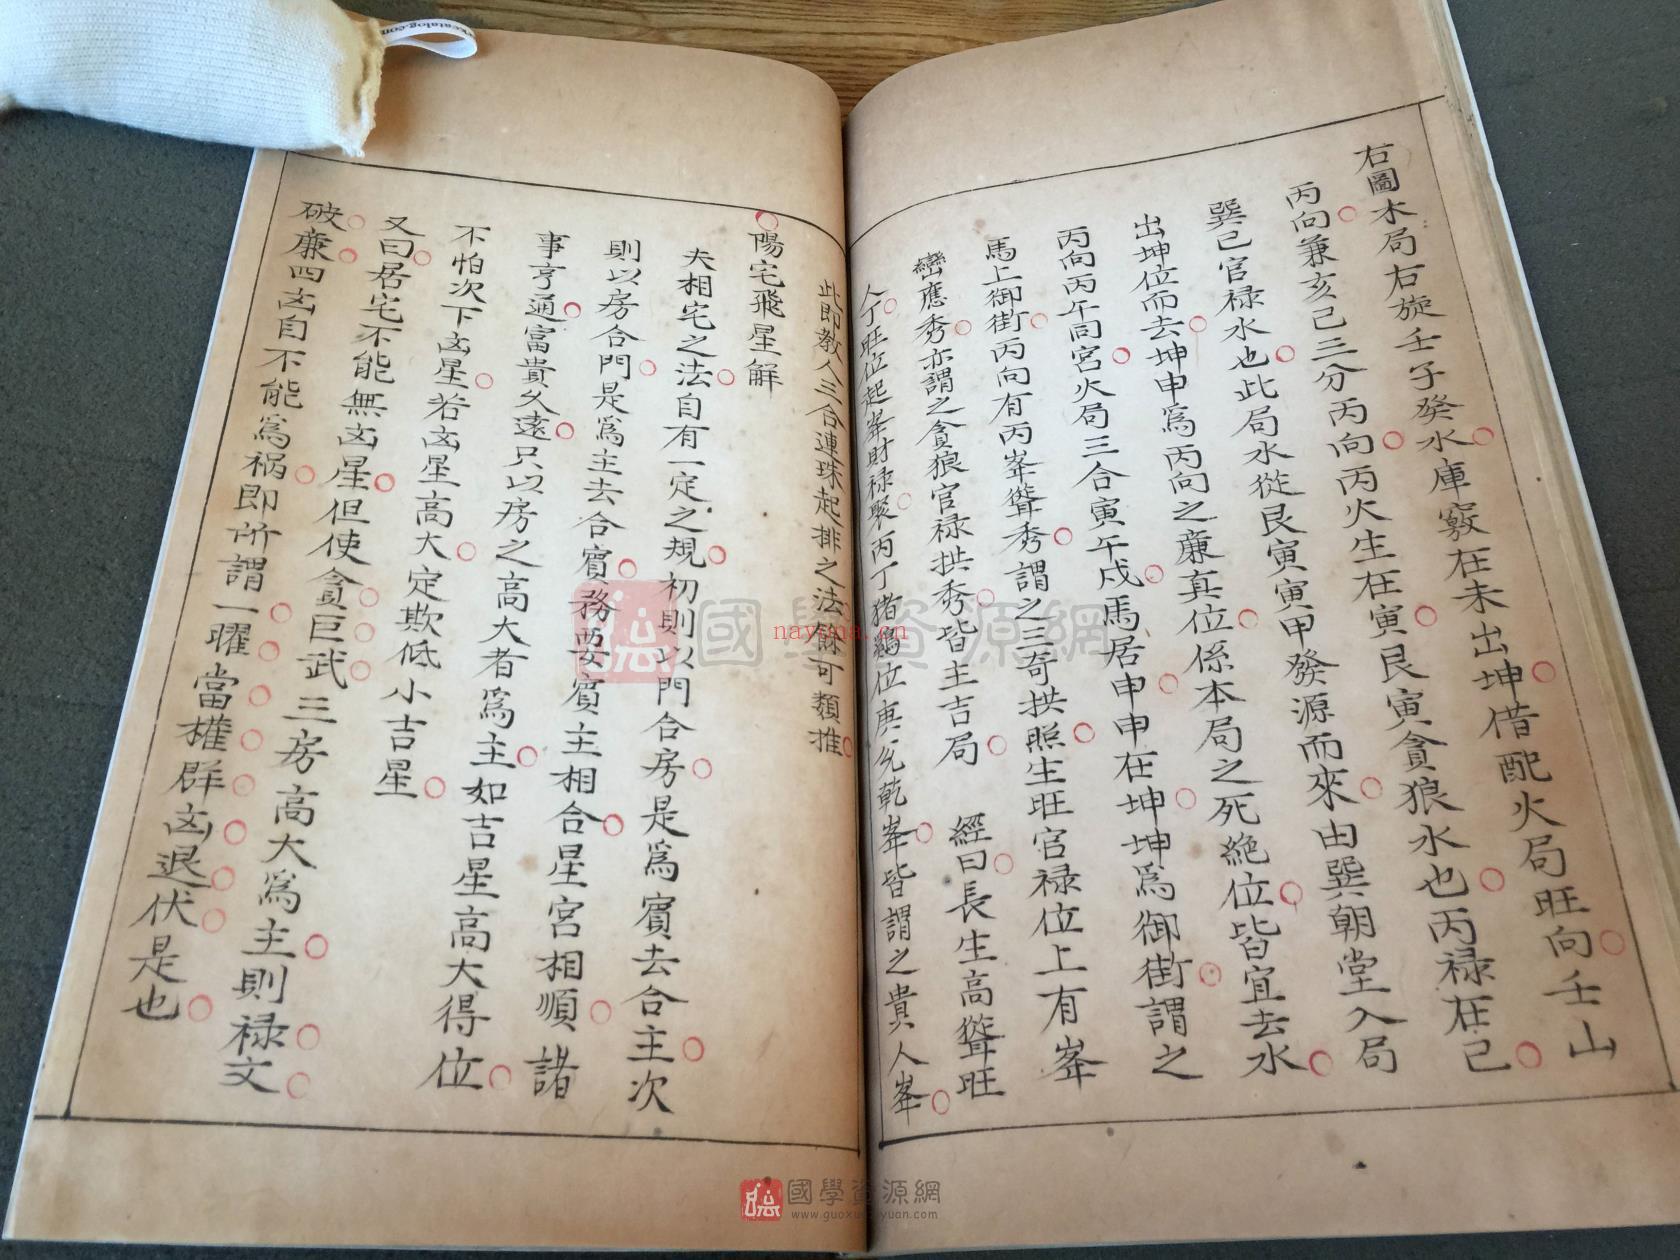 右圖木局右旋壬子癸水庫竅在未出坤借配火局旺向壬山
丙向兼亥己三分丙向丙火生在寅艮寅貪狼水也丙祿在己
巽己官祿水也此局水從艮寅寅甲發源而來由巽朝堂入局
出坤位而去坤申爲丙向之廉真位係本局之死絶位皆宜去水
丙向丙午同宮火局三合寅午戍馬居申申在坤坤爲御街謂之
馬上御街丙向有丙峯聳秀謂之三奇拱照生旺官祿位上有峯
巒應秀亦謂之貪狼官祿拱秀皆主吉局 經曰長生高聳旺
人丁旺位起峯財祿聚丙丁猪鷄位庚兊乾峯皆謂之貴人峯
此即教人三合連珠起排之法餘可類推
陽宅飛星解
夫相宅之法自有一定之規初則以門合房是爲賓去合主次
則以房合門是爲主去合賓務要賓主相合星宮相順諸
事亨通富貴久遠只以房之高大者爲主如吉星高大得位
不怕次下凶星若凶星高大定欺低小吉星
又曰居宅不能無凶星但使貪巨武三房高大爲主則祿文
破廉四凶自不能爲禍即所謂一曜當權群凶退伏是也
國學資源網
nayona.cn
國學資源網
www.guoxueziyuan.com
rkcatalog.com